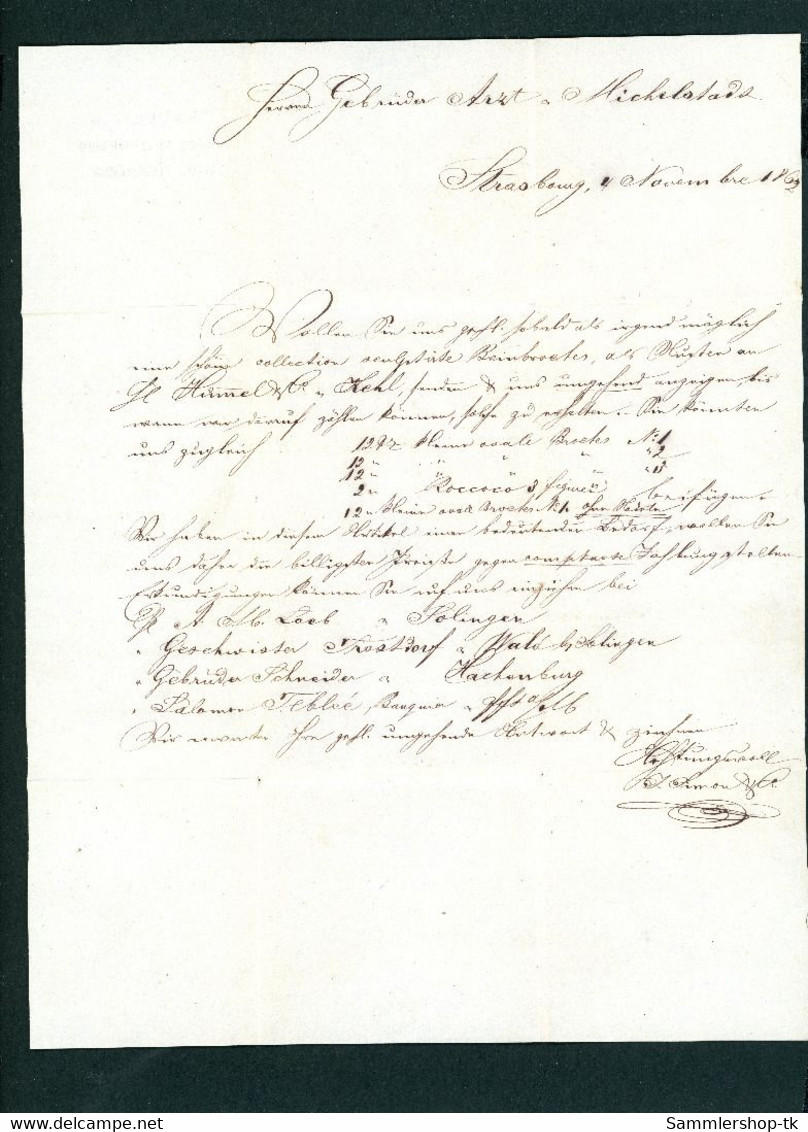 Herren Gebrüder Arzt in Michelstadt
Strasbourg, 4 Novembre 186
Wollen Sie uns gefl. sobald als irgend möglich
eine schöne collection sculptirte Beinbroches, als Muster an
H Hummel & C. in Kehl, senden & uns umgehend anzeigen, bis
wann wir darauf zählen können, solche zu erhalten. Sie könnten
uns zugleich
12 Dz kleine ovale Broches N: 1
12 " " " " " 2
12 " " " " " 3
2 " Roccoco 3 figuren
12 " kleine ovale Broches N: 1. ohne beifügen.
Wir haben in diesem Artikel einen bedeutenden Bedarf, wollen Sie
uns daher die billigsten Preise gegen comptante Zahlung stellen
Erkundigungen können Sie auf uns einziehen bei
H A. M. Loeb in Solingen
" Geschwister Trostdorf in Wald b/Solingen
" Gebrüder Schneider in Hachenburg
" Salomon Banquier in Fft a/M
Wir erwarten Ihre gefl. umgehende Antwort & zeichnen
Hochachtungsvoll
J. Simon & C.
Sammlershop-tk